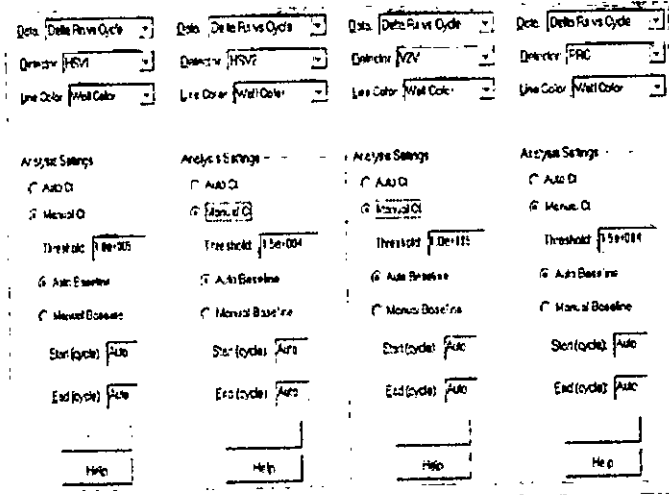 Data: Delta Rn vs Cycle
Detector: HSV1
Line Color: Well Color
Analysis Settings
Auto Ct
Manual Ct
Threshold:
Auto Baseline
Manual Baseline
Start (cycle): Auto
End (cycle): Auto
Help
Data: Delta Rn vs Cycle
Detector: HSV2
Line Color: Well Color
Analysis Settings
Auto Ct
Manual Ct
Threshold: 1.5e+004
Auto Baseline
Manual Baseline
Start (cycle): Auto
End (cycle): Auto
Help
Data: Delta Rn vs Cycle
Detector: VZV
Line Color: Well Color
Analysis Settings
Auto Ct
Manual Ct
Threshold: 1.0e+005
Auto Baseline
Manual Baseline
Start (cycle): Auto
End (cycle): Auto
Help
Data: Delta Rn vs Cycle
Detector: PRC
Line Color: Well Color
Analysis Settings
Auto Ct
Manual Ct
Threshold: 1.5e+004
Auto Baseline
Manual Baseline
Start (cycle): Auto
End (cycle): Auto
Help